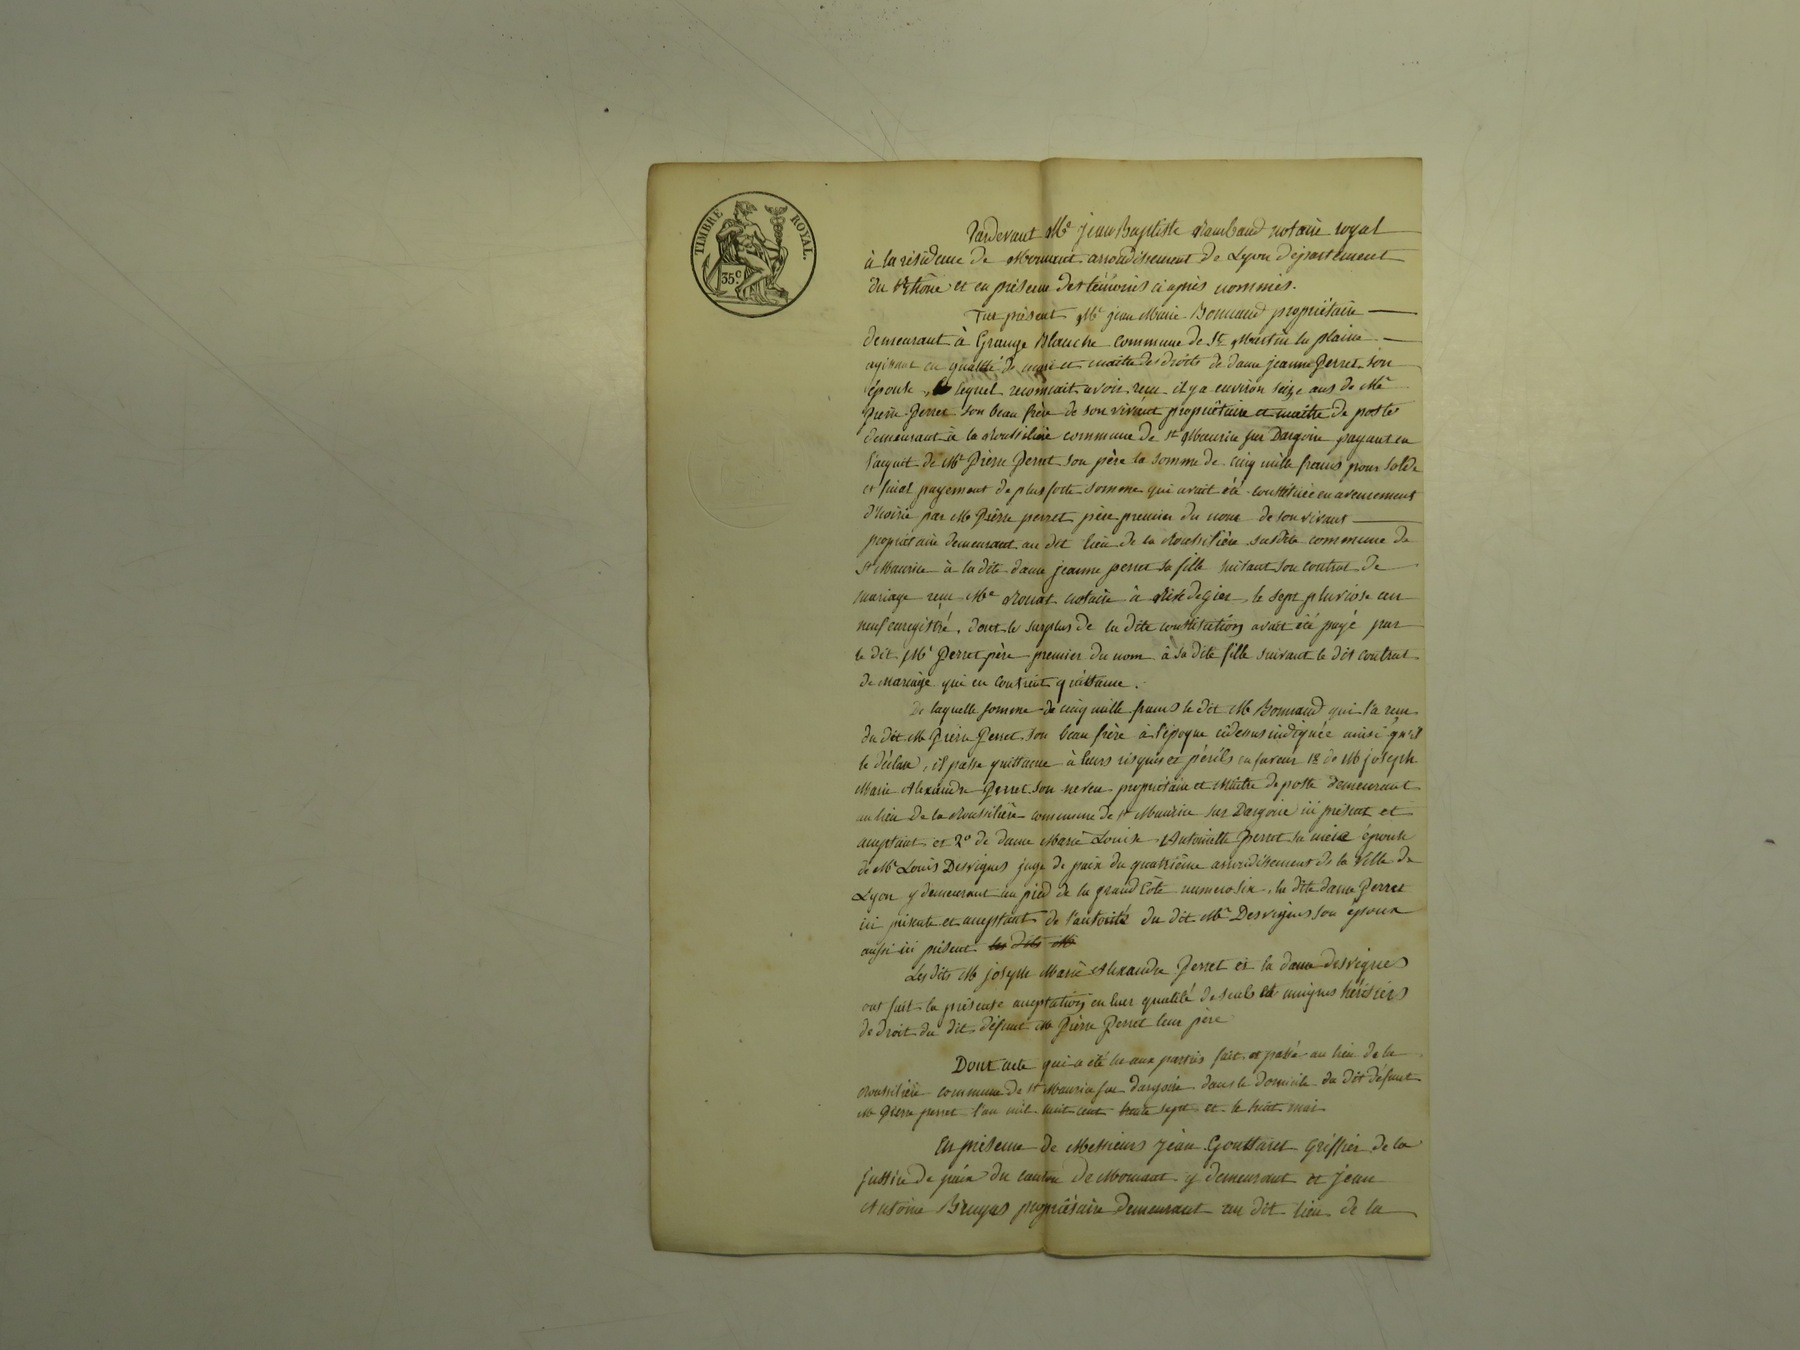 TIMBRE ROYAL.
35.c
Pardevant Me jean Baptiste Rambaud notaire royal
à la résidence de Mornant arrondissement de Lyon département
du Rhône et en présence des témoins ci après nommés.
Fut présent Mr jean Marie Bonnand propriétaire
demeurant à Grange Blanche commune de St Martin la plaine
agissant en qualité de mari et maître des droits de dame jeanne Perret son
épouse, lequel reconnait avoir reçu il y a environ seize ans de Mr
Pierre Perret son beau frère de son vivant propriétaire et maître de postes
demeurant à la Roussilière commune de St Maurice sur Dargoire payant en
l'acquit de Mr Pierre Perret son père la somme de cinq mille francs pour solde
et final payement de plus forte somme qui avait été constituée en avencement
d'hoirie par Mr Pierre perret père premier du nom de son vivant
propriétaire demeurant au dit lieu de la Roussilière susdite commune de
St Maurice à la dite dame jeanne perret sa fille suivant son contrat de
mariage reçu Me Rouat notaire à Rive de Gier, le sept pluviose an
neuf enregistré, dont le surplus de la dite constitution avait été payé par
le dit Mr Perret père premier du nom à sa dite fille suivant le dit contrat
de mariage qui en contient quittance.
De laquelle somme de cinq mille francs le dit Mr Bonnand qui l'a reçu
du dit Mr Pierre Perret son beau frère à l'époque cidessus indiquée ainsi qu'il
le déclare, il passe quittance à leurs risques et périls en faveur 1º de Mr joseph
Marie Alexandre Perret son neveu propriétaire et Maître de poste demeurant
au lieu de la Roussilière commune de St Maurice sur Dargoire ici présent et
acceptant et 2º de dame Marie Louise Antoinette Perret sa nièce épouse
de Mr Louis Desvignes juge de paix du quatrième arrondissement de la Ville de
Lyon y demeurant au pied de la grand Côte numero six, la dite dame Perret
ici présente et acceptant de l'autorité du dit Mr Desvignes son époux
aussi ici présent les dits Mr
Les dits Mr joseph Marie Alexandre Perret et la dame desvignes
ont fait la présente acceptation en leur qualité de seuls et uniques héritiers
de droit du dit défunt Mr Pierre Perret leur père
Dont acte qui a été lu aux parties fait et passé au lieu de la
Roussilière commune de St Maurice sur dargoire dans le domicile du dit défunt
Mr Pierre perret l'an mil huit cent trente sept et le huit mai
En présence de Messieurs Jean Gouttaret Greffier de la
justice de paix du canton de Mornant y demeurant et Jean
Antoine Bruyas propriétaire demeurant au dit lieu de la